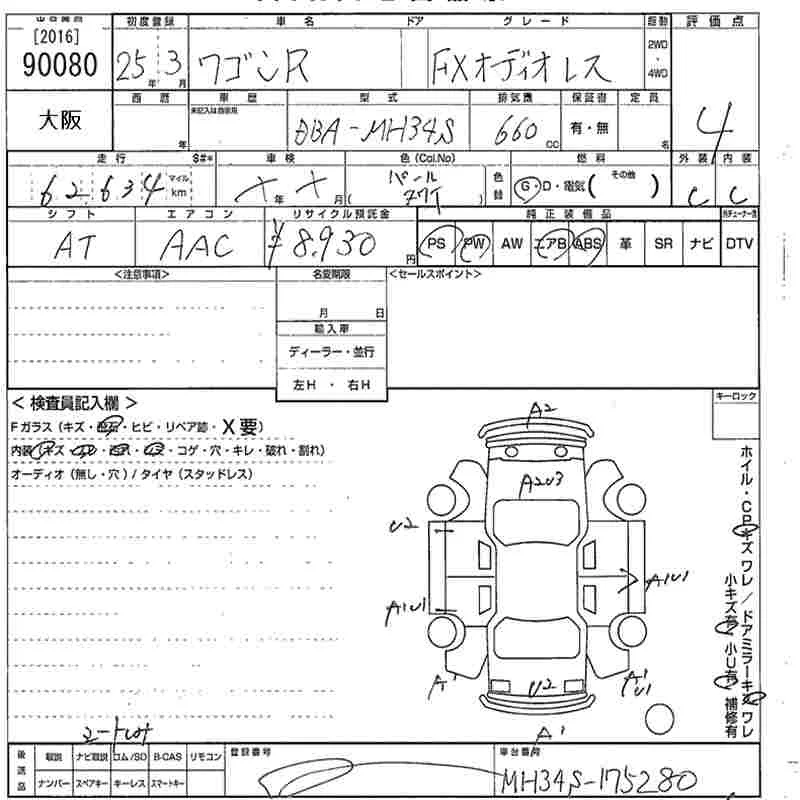 [2016]
90080
大阪
初度登録
25年 3月
車名
ワゴンR
ドア
グレード
FXオーディオレス
駆動
2WD
・
4WD
評価点
4
西暦
年
車歴
未記入は自家用
型式
DBA-MH34S
排気量
660 CC
保証書
有・無
定員
名
走行 S#*
62634 マイル km
車検
×年 ×月
色(Col.No)
パール
( )
色替
燃料
G・D・電気( その他 )
外装 内装
C C
シフト
AT
エアコン
AAC
リサイクル預託金
¥8,930円
純正装備品
PS PW AW エアB ABS 革 SR ナビ
DTV
<注意事項>
名変期限
月 日
輸入車
ディーラー・並行
左H ・ 右H
<セールスポイント>
キーロック
< 検査員記入欄 >
Fガラス(キズ・飛石・ヒビ・リペア跡・X要)
内装(キズ・・・・コゲ・穴・キレ・破れ・割れ)
オーディオ(無し・穴)/タイヤ(スタッドレス)
A2
A2U3
U2
A1U1
A1U1
A1
U2
A1
U1
A1
ホイル・CPキズ ワレ/ドアミラーキズ ワレ
小キズ有 小U有 補修有
後送品
取説 ナビ取説 ロム/SD B-CAS リモコン
ナンバー スペアキー キーレス スマートキー
登録番号
車台番号
MH34S-175280